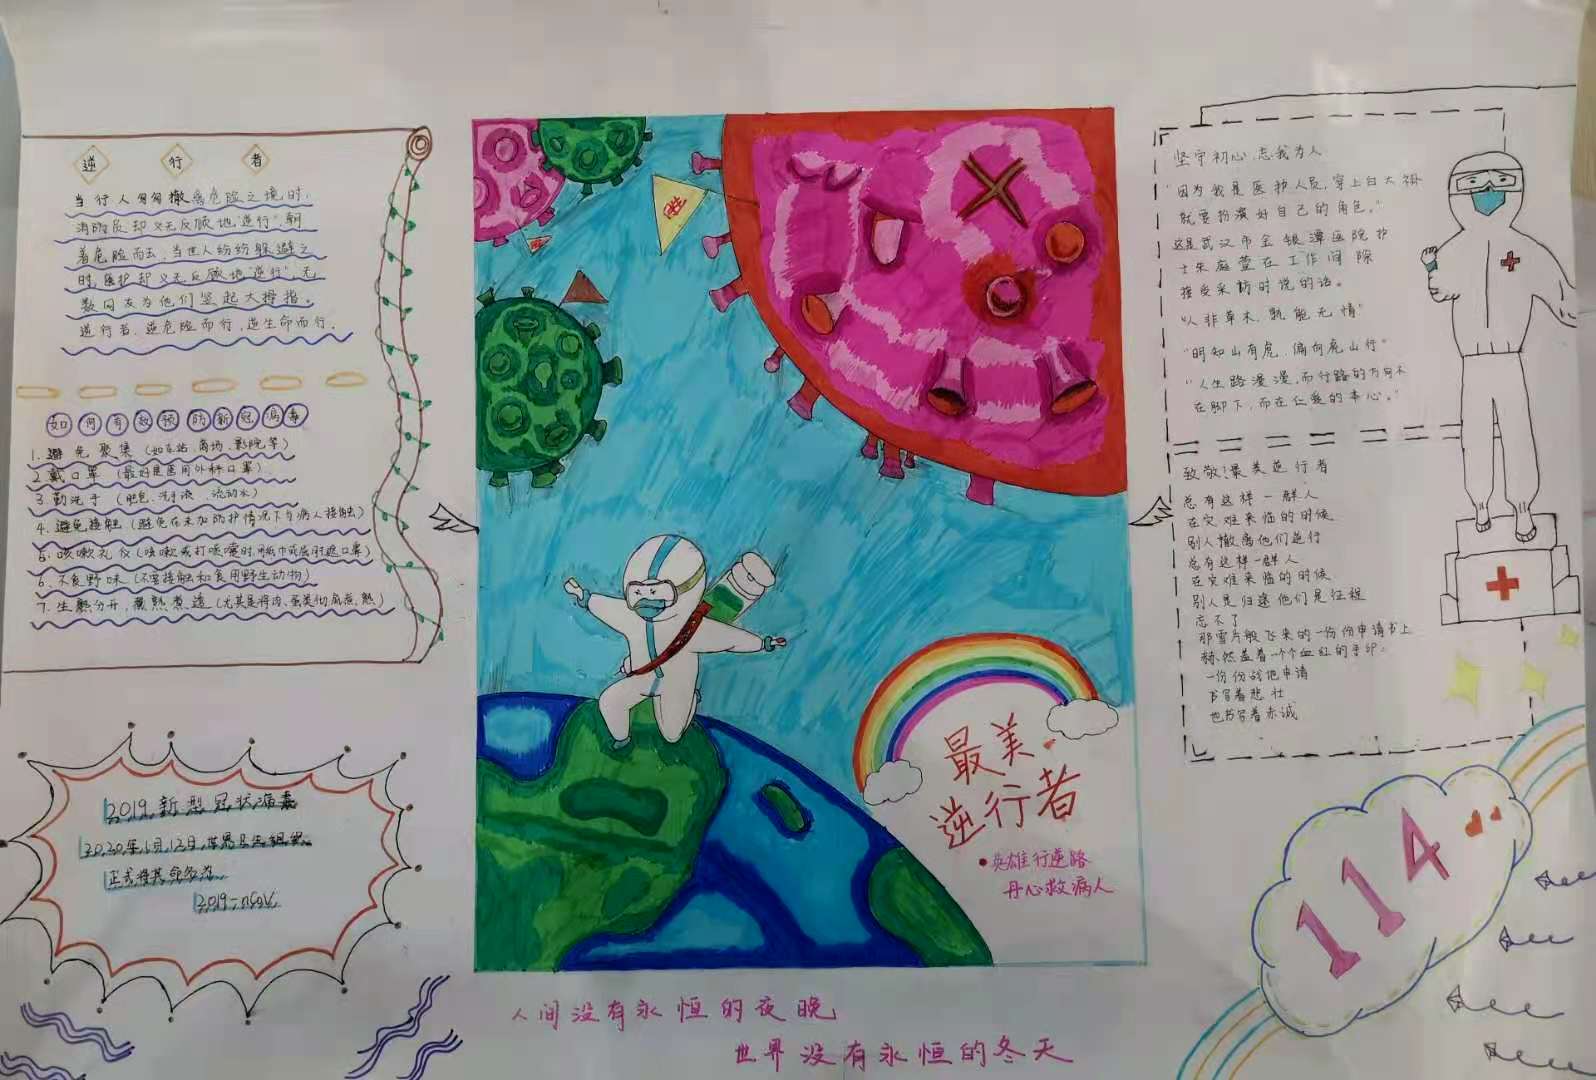 逆行者
当行人匆匆撤离危险之境时,
消防员却义无反顾地“逆行”朝
着危险而去,当世人纷纷躲避之
时,医护却义无反顾地“逆行”,无
数网友为他们竖起大拇指。
逆行者,逆危险而行,逆生命而行.
如何有效预防新冠病毒
1.避免聚集(如车站、商场、影院等)
2.戴口罩(最好是医用外科口罩)
3.勤洗手(肥皂、洗手液、流动水)
4.避免接触(避免在未加防护情况下与病人接触)
5.咳嗽礼仪(咳嗽或打喷嚏时,用纸巾或
6.不食野味(不要接触和食用野生动物)
7.生熟分开,蒸熟煮透
2019新型冠状病毒
2020年1月12日,世界卫生组织
正式将其命名为
2019-nCoV
胜
最美
逆行者
英雄行逆路
丹心救病人
人间没有永恒的夜晚
世界没有永恒的冬天
坚守初心,忘我为人
“因为我是医护人员,穿上白大褂
就要扮演好自己的角色。”
这是武汉市金银潭医院护
士朱庭萱在工作间隙
接受采访时说的话。
“人非草木,孰能无情”
“明知山有虎,偏向虎山行”
“人生路漫漫,而行路的方向不
在脚下,而在仁爱的本心。”
致敬!最美逆行者
总有这样一群人
在灾难来临的时候
别人撤离他们逆行
总有这样一群人
在灾难来临的时候
别人是归途他们是征程
忘不了
那雪片般飞来的一份份申请书上
赫然盖着一个个血红的手印:
一份份战地申请
书写着悲壮
也书写着赤诚
114